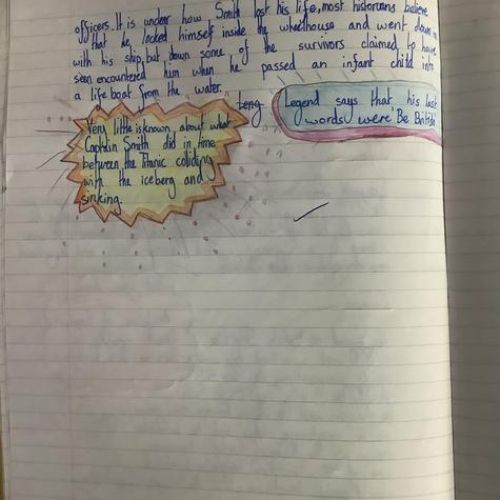 officers. It is unclear how Smith lost his life, most historians believe
that he locked himself inside the wheelhouse and went down
with his ship, but down some of the survivors claimed to have
seen encountered him when he passed an infant child into
a life boat from the water.
Leng
Legend says that his last
words were 'Be British'
Very little is known about what
Captain Smith did in time
between the Titanic coliding
with the iceberg and
sinking.